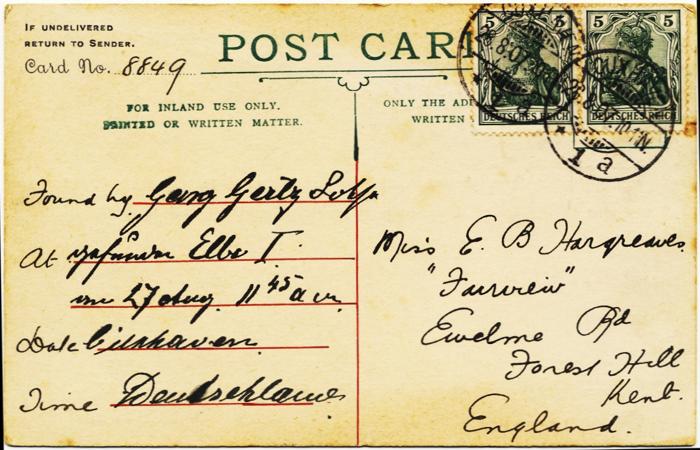 IF UNDELIVERED
RETURN TO SENDER.
Card No. 8849
POST CAR
FOR INLAND USE ONLY.
PRINTED OR WRITTEN MATTER.
ONLY THE AD
WRITTEN
5 5
DEUTSCHES REICH
5 5
DEUTSCHES REICH
1 a
Found by Georg Gertz
At gefunden Elbe I.
am 27 Aug. 11 45 a m.
Date Cuxhaven
Time Deutschland
Miss E. B Hargreaves.
"Fairview"
Ewelme Rd
Forest Hill
Kent.
England.